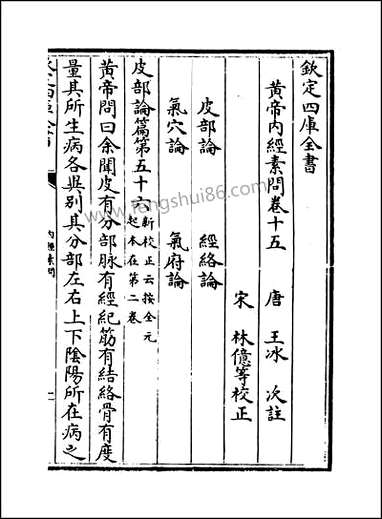 欽定四庫全書
黃帝內經素問卷十五
唐 王冰 次註
宋 林億等校正
皮部論 經絡論
氣穴論 氣府論
皮部論篇第五十六新校正云按全元
起本在第二卷
黃帝問曰余聞皮有分部脉有經紀筋有結絡骨有度
量其所生病各異别其分部左右上下陰陽所在病之
內經素問
一
www.fengshui86.com